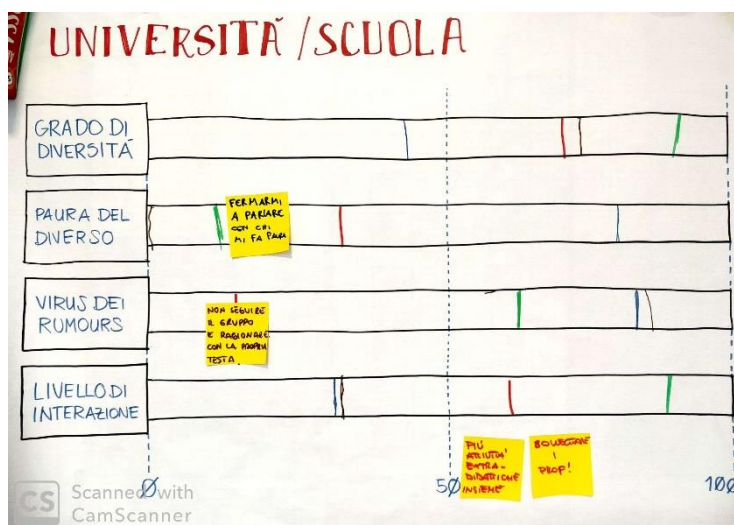 UNIVERSITÁ / SCUOLA
GRADO DI
DIVERSITÁ
PAURA DEL
DIVERSO
FERMARMI
A PARLARE
CON CHI
MI FA PAURA
VIRUS DEI
RUMOURS
NON SEGUIRE
IL GRUPPO
E RAGIONARE
CON LA PROPRIA
TESTA.
LIVELLO DI
INTERAZIONE
PIÚ
ATTIVITÁ
EXTRA-
DIDATTICHE
INSIEME
I
PROF!
0
50
100
CS Scanned with
CamScanner